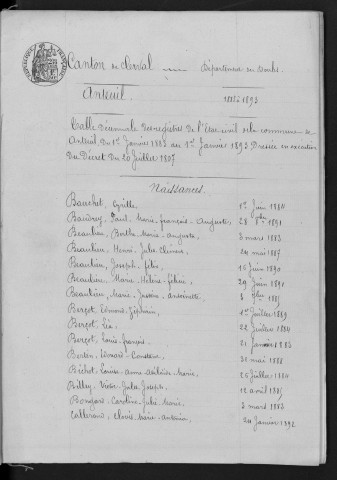 Canton de Clerval
Département du Doubs
Anteuil
1883 à 1893
Table Décennale des registres de l'Etat civil de la commune de
Anteuil du 1er Janvier 1883 au 1er Janvier 1893 Dressée en exécution
du Décret du 20 Juillet 1807
Naissances.
Bauchet, Cyrille 1er Juin 1884
Baudrey, Paul Marie françois Auguste 28 8bre 1891
Beaulieu, Berthe Marie augusta 3 mars 1883
Beaulieu, Henri Jules Clément 24 mai 1887
Beaulieu, Joseph félix 16 Juin 1890
Beaulieu, Marie Hélène félicie 29 Juin 1891
Beaulieu, Marie Justine antoinette
Berçot, Edmond Zéphirin 1er Juillet 1889
Berçot, Léa 22 Juillet 1884
Berçot, Louis françois 21 Janvier 1883
Constance 31 mai 1888
Béchot, Louise Marie 26 Juillet 1884
Billey, Victor Jules Joseph 12 avril 1885
Bongard, Caroline Julie Marie 3 mars 1884
Clovis Marie 24 Janvier 1892